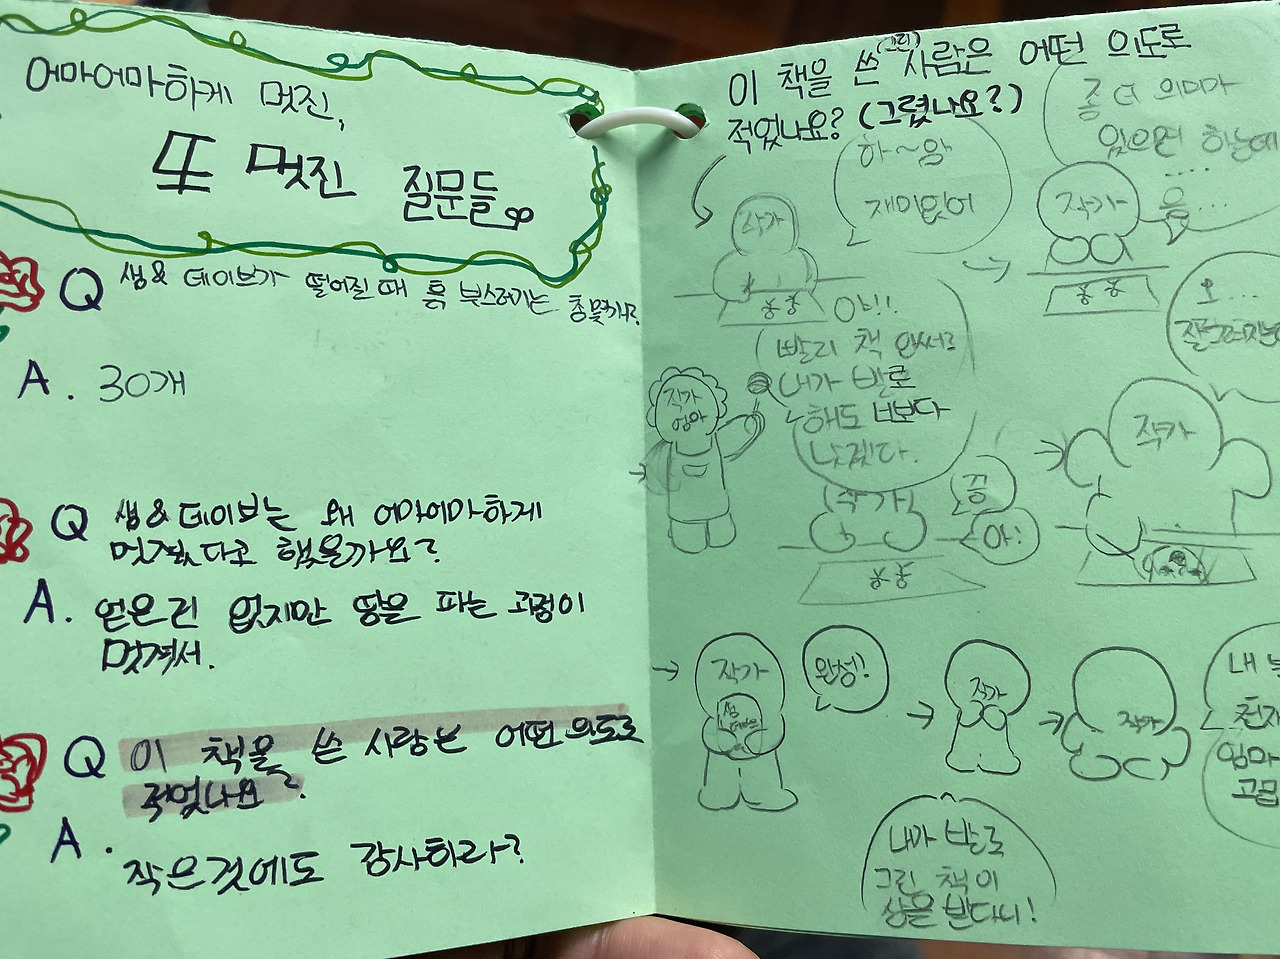 어마어마하게 멋진,
또 멋진 질문들
Q 샘 & 데이브가 떨어질 때 흙 부스러기는 총 몇개?
A. 30개
Q 샘 & 데이브는 왜 어마어마하게
멋졌다고 했을까요?
A. 얻은건 없지만 땅을 파는 과정이
멋져서.
Q 이 책을 쓴 사람은 어떤 의도로
적었나요?
A. 작은것에도 감사하라?
이 책을 쓴 (그린) 사람은 어떤 의도로
적었나요? (그렸나요?)
하~암
재미없어
작가
좀 더 의미가
있으면 하는데
....
음...
작가
야!!
빨리 책 안써?
내가 발로
해도 너보다
낫겠다.
작가
엄마
작가
끙
아!
오...
작가
작가
완성!
작가
작가
내가 발로
그린 책이
상을 받다니!
내
천재
엄마